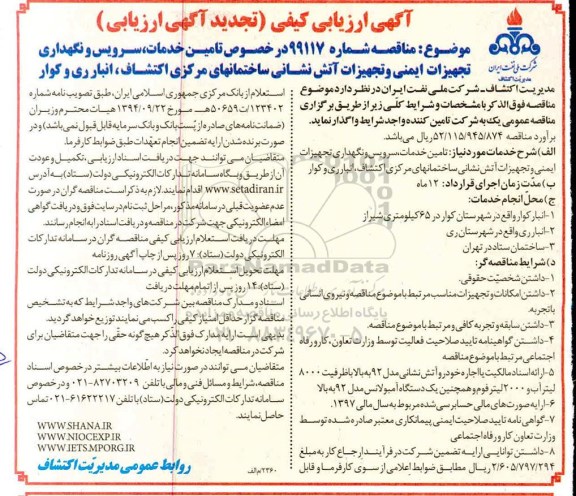 آگهی ارزیابی کیفی (تجدید آگهی ارزیابی)
موضوع: مناقصه شماره ۹۹۱۱۷ درخصوص تامین خدمات، سرویس و نگهداری
تجهیزات ایمنی و تجهیزات آتش نشانی ساختمانهای مرکزی اکتشاف، انبار ری و کوار
شرکت ملی نفت ایران
مدیریت اکتشاف
مدیریت اکتشاف - شرکت ملی نفت ایران در نظر دارد موضوع
مناقصه فوق الذکر با مشخصات و شرایط کلی زیر از طریق برگزاری
مناقصه عمومی یک به شرکت تامین کننده واجد شرایط واگذار نماید.
برآورد مناقصه ۵۲/۱۱۵/۹۴۵/۸۷۴ ریال می باشد.
الف) شرح خدمات مورد نیاز: تامین خدمات، سرویس و نگهداری تجهیزات
ایمنی و تجهیزات آتش نشانی ساختمانهای مرکزی اکتشاف، انبار ری و کوار
ب) مدت زمان اجرای قرارداد: ۱۲ ماه
ج) محل انجام خدمات:
۱- انبار کوار واقع در شهرستان کوار در ۶۵ کیلومتری شیراز
۲- انبار ری واقع در شهرستان ری
۳- ساختمان ستاد در تهران
د) شرایط مناقصه گر:
۱- داشتن شخصیت حقوقی.
۲- داشتن امکانات و تجهیزات مناسب مرتبط با موضوع مناقصه و نیروی انسانی
با تجربه.
۳- داشتن سابقه و تجربه کافی و مرتبط با موضوع مناقصه.
۴- داشتن گواهینامه تایید صلاحیت فعالیت توسط وزارت تعاون، کار و رفاه
اجتماعی مرتبط با موضوع مناقصه
۵- ارائه اسناد مالکیت یا اجاره خودرو آتش نشانی مدل ۹۲ به بالا با ظرفیت ۸۰۰۰
لیتر آب و ۲۰۰۰ لیتر فوم و همچنین یک دستگاه آمبولانس مدل ۹۲ به بالا
۶- ارایه صورت های مالی حسابرسی شده مربوط به سال مالی ۱۳۹۷.
۷- گواهی نامه تایید صلاحیت ایمنی پیمانکاری معتبر صادره شده توسط
وزارت تعاون کار و رفاه اجتماعی
۸- داشتن توانایی ارایه تضمین شرکت در فرآیند ارجاع کار به مبلغ
۲/۶۰۵/۷۹۷/۲۹۴ ریال مطابق ضوابط اعلامی از سوی کارفرما و قابل
استعلام از بانک مرکزی جمهوری اسلامی ایران، طبق تصویب نامه شماره
۱۲۳۴۰۲/ت۵۰۶۵۹هـ مورخ ۱۳۹۴/۰۹/۲۲ هیات محترم وزیران
(ضمانت نامه های صادره از پست بانک و بانک سرمایه قابل قبول نمی باشد) و در
صورت برنده شدن ارایه تضمین انجام تعهدات طبق ضوابط کارفرما.
متقاضیان می توانند جهت دریافت اسناد ارزیابی، تکمیل و عودت
آن از طریق وبگاه سامانه تدارکات الکترونیکی دولت (ستاد) به آدرس
www.setadiran.ir اقدام نمایند. لازم به ذکر است مناقصه گران در صورت
عدم عضویت قبلی در سامانه مذکور، مراحل ثبت نام در سایت فوق و دریافت گواهی
امضاء الکترونیکی جهت شرکت در مناقصه و دریافت اسناد را به انجام رسانند.
مهلت دریافت استعلام ارزیابی کیفی مناقصه گران در سامانه تدارکات
الکترونیکی دولت (ستاد): ۷ روز پس از چاپ آگهی روزنامه
مهلت تحویل استعلام ارزیابی کیفی در سامانه تدارکات الکترونیکی دولت
(ستاد): ۱۴ روز پس از اتمام مهلت دریافت
اسناد و مدارک مناقصه بین شرکت های واجد شرایط که به تشخیص
مناقصه گزار حداقل امتیاز کیفی را کسب می نمایند توزیع خواهد گردید.
بدیهی است ارایه مدارک فوق الذکر هیچ گونه حقی را جهت متقاضیان برای
شرکت در مناقصه ایجاد نخواهد کرد.
متقاضیان می توانند در صورت نیاز به اطلاعات بیشتر در خصوص اسناد
مناقصه، شرایط و مسائل فنی و مالی با تلفن ۸۲۷۰۳۲۰۹-۰۲۱ و در خصوص
سامانه تدارکات الکترونیکی دولت (ستاد) با تلفن ۶۱۶۲۲۲۱۷-۰۲۱ تماس
حاصل نمایند.
WWW.SHANA.IR
WWW.NIOCEXP.IR
WWW.IETS.MPORG.IR
۲۳۶۰/م الف
روابط عمومی مدیریت اکتشاف
ParsNamadData
پایگاه اطلاع رسانی مناقصه و مزایده